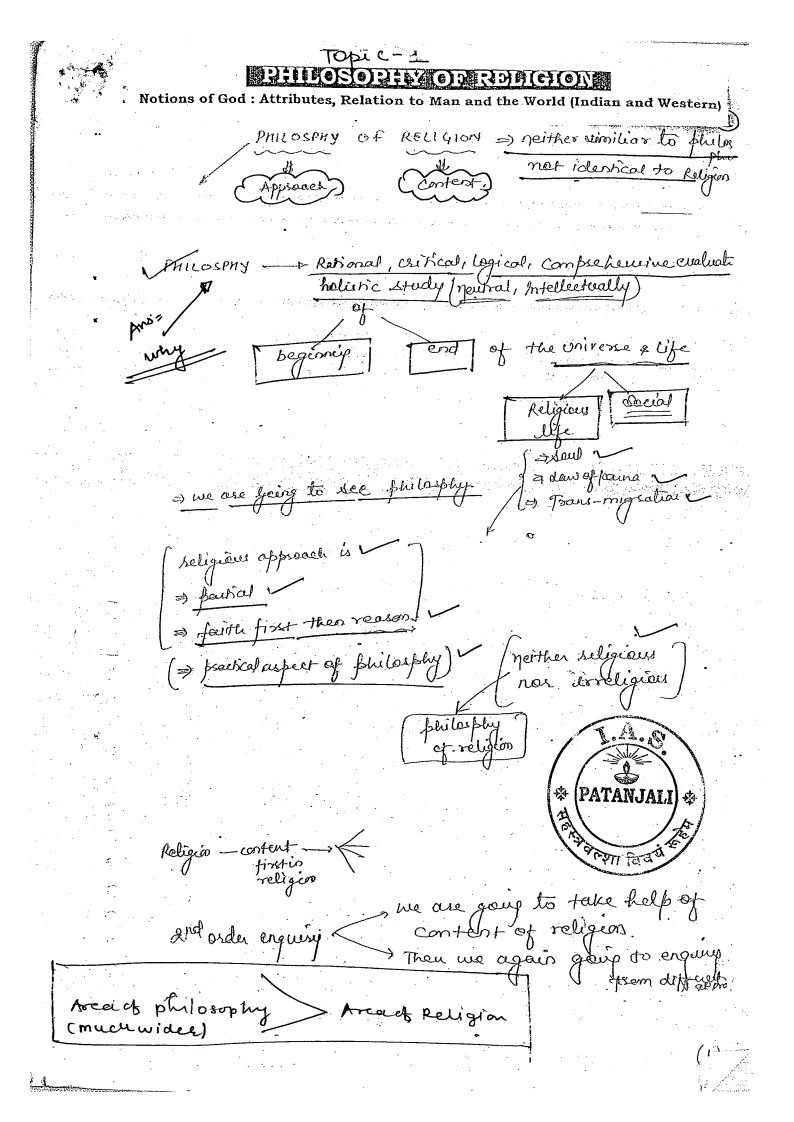 Topic-1
PHILOSOPHY OF RELIGION
Notions of God : Attributes, Relation to Man and the World (Indian and Western)
PHILOSPHY of RELIGION ⇒ neither similiar to philos
phy
not identical to Religion
Approach
Content.
PHILOSPHY → Rational, critical, logical, comprehensive evaluate
holistic study (neutral, Intellectually)
of
Ans=
why
beginnip
end
of the universe & life
Religious
life
social
⇒ soul
⇒ Law of karma
⇒ Trans-migration
⇒ we are going to see philosophy
religious approach is
⇒ partial
⇒ faith first then reason.
(⇒ practical aspect of philosphy)
neither religious
nor irreligious
philosphy
of religion
I.A.S.
PATANJALI
सहस्त्रवल्शा वि वयं रूहेम
Religio — content →
first in
religion
2nd order enquiry
we are going to take help of
content of religion.
Then we again going to enquiry
from different
appro.
Area of philosophy
(much wider)
> Area of Religion
(1)